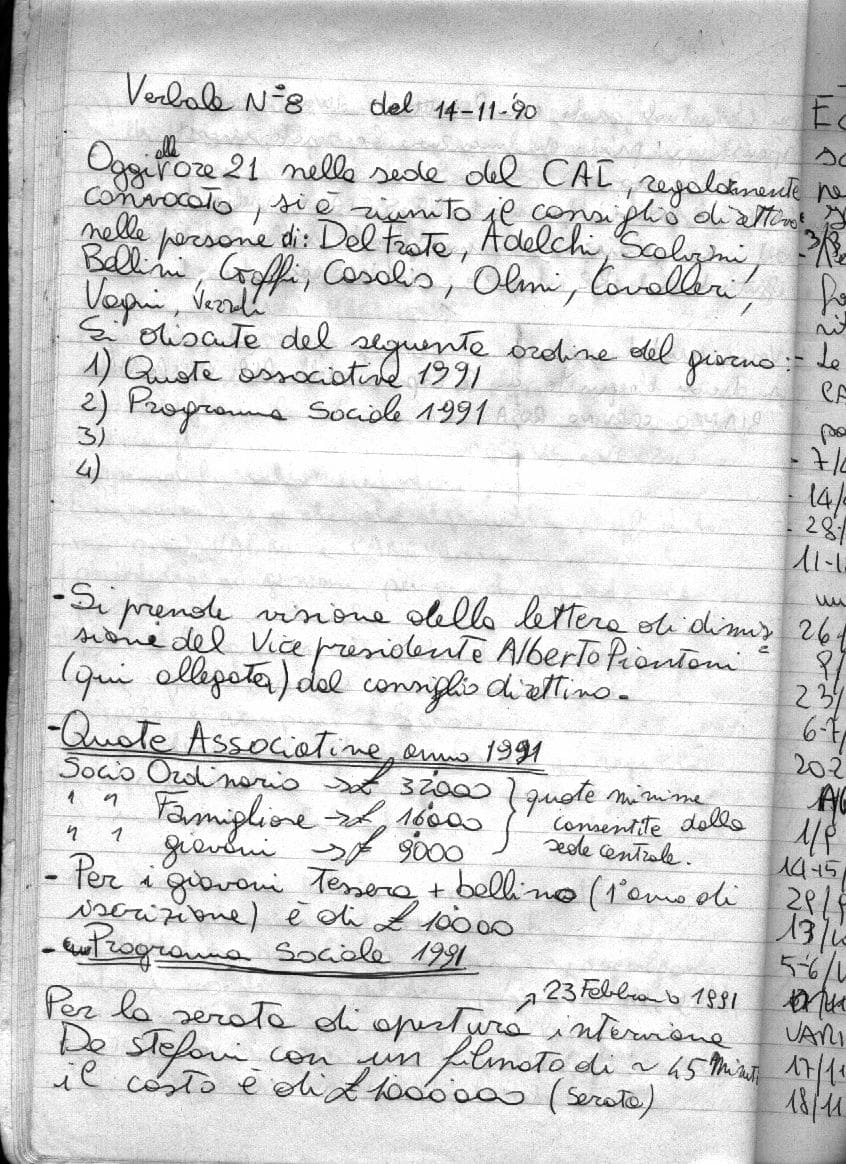 Verbale N°8 del 14-11-'90
Oggi alle ore 21 nella sede del CAI, regolarmente
convocato, si è riunito il consiglio direttivo
nelle persone di: Del Frate, Adelchi, Scalvini,
Bellini, Goffi, Casalis, Olmi, Cavalleri,
Vezzoli
Si discute del seguente ordine del giorno:
1) Quote associative 1991
2) Programma Sociale 1991
3)
4)
- Si prende visione della lettera di dimis
sione del Vice presidente Alberto Piantoni
(qui allegata) dal consiglio direttivo.
- Quote Associative anno 1991
Socio Ordinario → £ 32000 } quote minime
" " Famigliare → £ 16000 consentite dalla
" " giovani → £ 9000 sede centrale.
- Per i giovani Tessera + bollino (1° anno di
iscrizione) è di £ 10000
- Programma Sociale 1991
↗ 23 Febbraio 1991
Per la serata di apertura interviene
De stefani con un filmato di ~ 45 Minuti
il costo è di £ 1000000 (serata)
3/3
7/
14/
28/
11-1
26
23/
6-7/
20-2
1/
14-15/
13/
5-6/
VARI
17/11
18/11